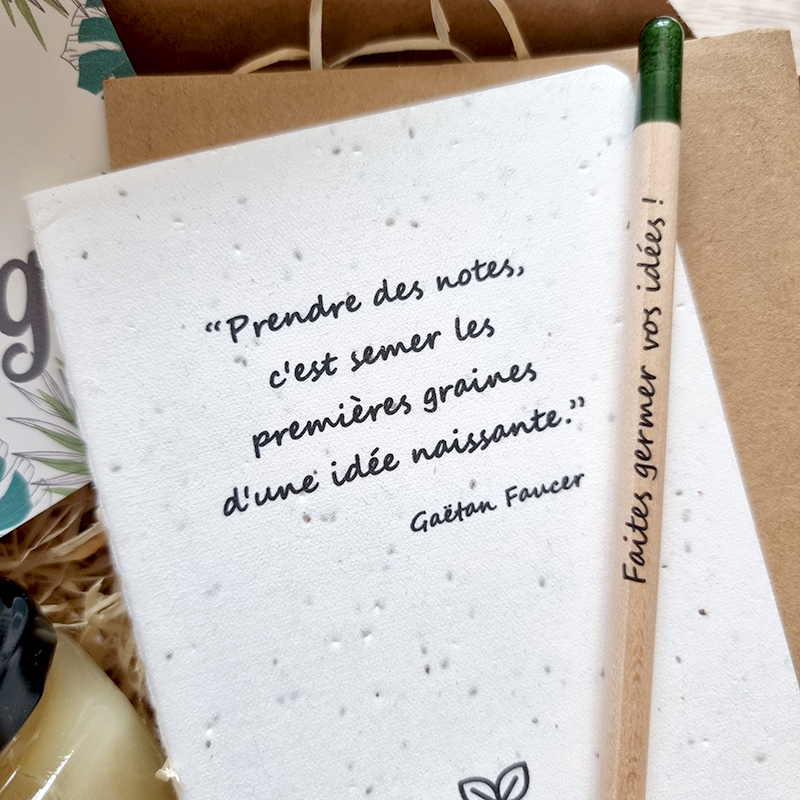 “Prendre des notes,
c'est semer les
premières graines
d'une idée naissante.”
Gaëtan Faucer
Faites germer vos idées !
g